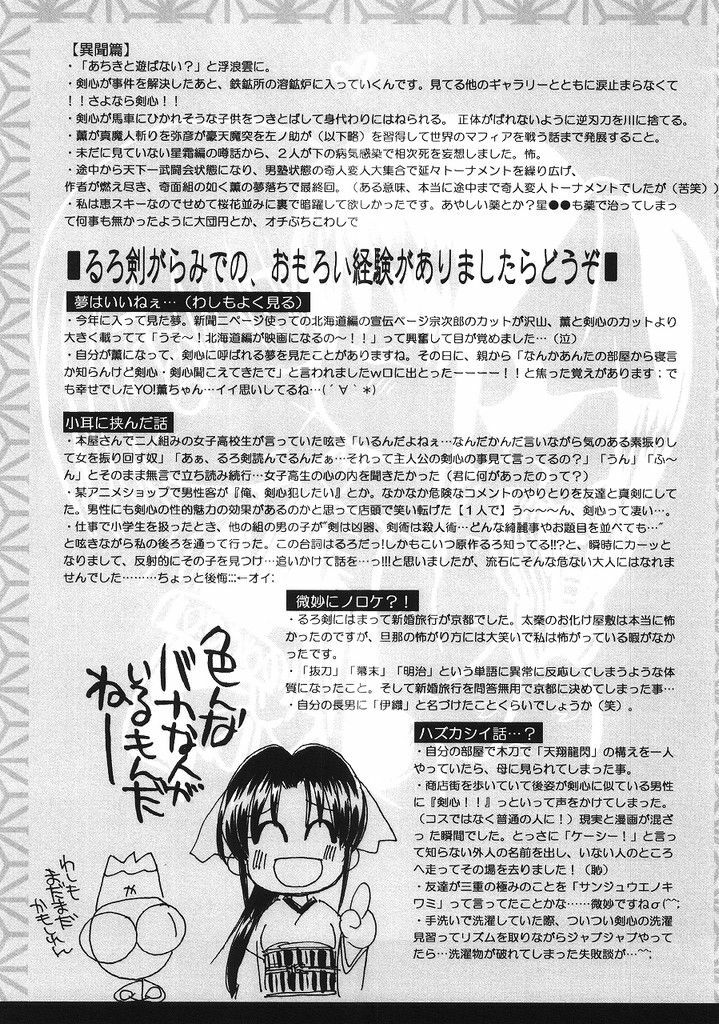 【異聞篇】
・「あちきと遊ばない？」と浮浪雲に。
・剣心が事件を解決したあと、鉄鉱所の溶鉱炉に入っていくんです。見てる他のギャラリーとともに涙止まらなくて
！！さよなら剣心！！
・剣心が馬車にひかれそうな子供をつきとばして身代わりにはねられる。 正体がばれないように逆刃刀を川に捨てる。
・薫が真魔人斬りを弥彦が豪天魔突を左ノ助が（以下略）を習得して世界のマフィアを戦う話まで発展すること。
・未だに見ていない星霜編の噂話から、２人が下の病気感染で相次死を妄想しました。怖。
・途中から天下一武闘会状態になり、男塾状態の奇人変人大集合で延々トーナメントを繰り広げ、
作者が燃え尽き、奇面組の如く薫の夢落ちで最終回。（ある意味、本当に途中まで奇人変人トーナメントでしたが（苦笑））
・私は恵スキーなのでせめて桜花並みに裏で暗躍して欲しかったです。あやしい薬とか？星●●も薬で治ってしまっ
て何事も無かったように大団円とか、オチぶちこわしで
■るろ剣がらみでの、おもろい経験がありましたらどうぞ■
夢はいいねぇ…（わしもよく見る）
・今年に入って見た夢。新聞二ページ使っての北海道編の宣伝ページ宗次郎のカットが沢山、薫と剣心のカットより
大きく載ってて「うそ～！北海道編が映画になるの～！！」って興奮して目が覚めました…（泣）
・自分が薫になって、剣心に呼ばれる夢を見たことがありますね。その日に、親から「なんかあんたの部屋から寝言
か知らんけど剣心・剣心聞こえてきたで」と言われましたｗ口に出とったーーーー！！と焦った覚えがあります；で
も幸せでしたYO!薫ちゃん…イイ思いしてるね…(´∀｀*)
小耳に挟んだ話
・本屋さんで二人組みの女子高校生が言っていた呟き「いるんだよねぇ…なんだかんだ言いながら気のある素振りし
て女を振り回す奴」「あぁ、るろ剣読んでるんだぁ…それって主人公の剣心の事見て言ってるの？」「うん」「ふ～
ん」とそのまま無言で立ち読み続行…女子高生の心の内を聞きたかった（君に何があったのって？）
・某アニメショップで男性客が『俺、剣心犯したい』とか。なかなか危険なコメントのやりとりを友達と真剣にして
た。男性にも剣心の性的魅力の効果があるのかと思って店頭で笑い転げた【１人で】う～～～ん、剣心って凄い…。
・仕事で小学生を扱ったとき、他の組の男の子が“剣は凶器、剣術は殺人術…どんな綺麗事やお題目を並べても…”
と呟きながら私の後ろを通って行った。この台詞はるろだっ!しかもこいつ原作るろ知ってる!!?と、瞬時にカーッと
なりまして、反射的にその子を見つけ…追いかけて話を…っ!!!と思いましたが、流石にそんな危ない大人にはなれま
せんでした………ちょっと後悔;;;←オイ;
微妙にノロケ？！
・るろ剣にはまって新婚旅行が京都でした。太秦のお化け屋敷は本当に怖
かったのですが、旦那の怖がり方には大笑いで私は怖がっている暇がなか
ったです。
・「抜刀」「幕末」「明治」という単語に異常に反応してしまうような体
質になったこと。そして新婚旅行を問答無用で京都に決めてしまった事…
・自分の長男に「伊織」と名づけたことくらいでしょうか（笑）。
ハズカシイ話…？
・自分の部屋で木刀で「天翔龍閃」の構えを一人
やっていたら、母に見られてしまった事。
・商店街を歩いていて後姿が剣心に似ている男性
に『剣心！！』っといって声をかけてしまった。
（コスではなく普通の人に！）現実と漫画が混ざ
った瞬間でした。とっさに「ケーシー！」と言っ
て知らない外人の名前を出し、いない人のところ
へ走ってその場を去りました！（恥）
・友達が三重の極みのことを「サンジュウエノキ
ワミ」って言ってたことかな……微妙ですねσ(^^;
・手洗いで洗濯していた際、ついつい剣心の洗濯
見習ってリズムを取りながらジャブジャブやって
たら…洗濯物が破れてしまった失敗談が…^^;
色んな
バカな人が
いるもんだ
ねー
わしも
まだまだ
かもしれん